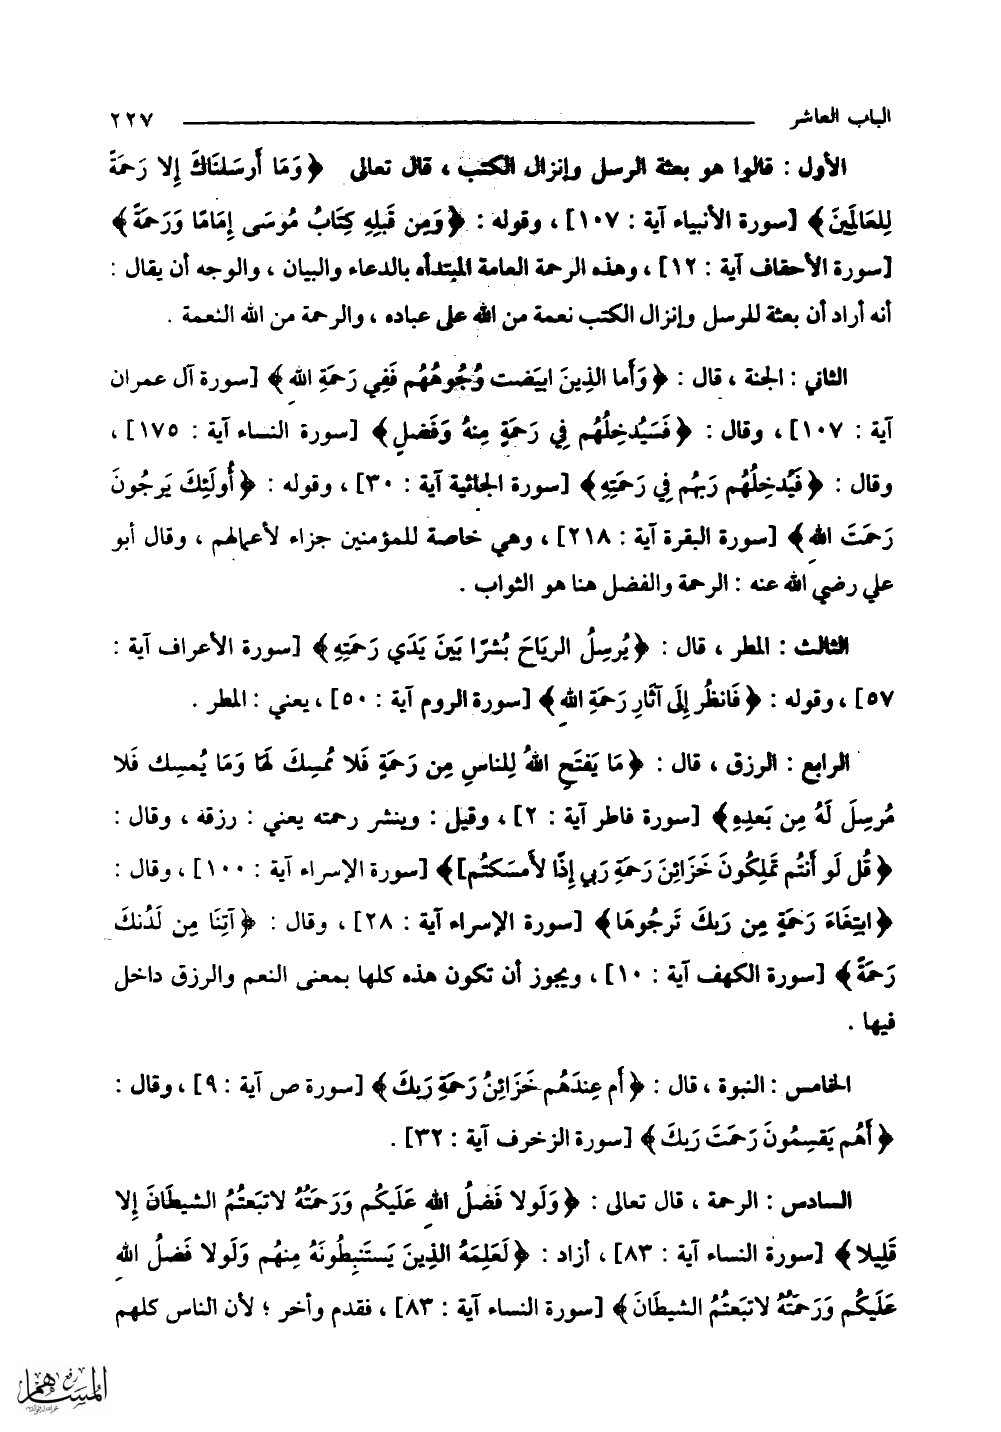 الباب العاشر ٢٢٧
الأول : قالوا هو بعثة الرسل وإنزال الكتب ، قال تعالى ﴿وَمَا أَرسَلنَاكَ إِلا رَحمَةً
لِلعَالَمِينَ﴾ [سورة الأنبياء آية : ١٠٧] ، وقوله : ﴿وَمِن قَبلِهِ كِتَابُ مُوسَى إِمَامًا وَرَحمَةً﴾
[سورة الأحقاف آية : ١٢] ، وهذه الرحمة العامة المبتدأه بالدعاء والبيان ، والوجه أن يقال :
أنه أراد أن بعثة للرسل وإنزال الكتب نعمة من الله على عباده ، والرحمة من الله النعمة .
الثاني : الجنة ، قال : ﴿وَأَما الذِينَ ابيَضت وُجُوهُهُم فَفِي رَحمَةِ اللهِ﴾ [سورة آل عمران
آية : ١٠٧] ، وقال : ﴿فَسَيُدخِلُهُم فِي رَحمَةٍ مِنهُ وَفَضلٍ﴾ [سورة النساء آية : ١٧٥] ،
وقال : ﴿فَيُدخِلُهُم رَبهُم فِي رَحمَتِهِ﴾ [سورة الجاثية آية : ٣٠] ، وقوله : ﴿أُولَئِكَ يَرجُونَ
رَحمَتَ اللهِ﴾ [سورة البقرة آية : ٢١٨] ، وهي خاصة للمؤمنين جزاء لأعمالهم ، وقال أبو
علي رضي الله عنه : الرحمة والفضل هنا هو الثواب .
الثالث : المطر ، قال : ﴿يُرسِلُ الريَاحَ بُشرًا بَينَ يَدَي رَحمَتِهِ﴾ [سورة الأعراف آية :
٥٧] ، وقوله : ﴿فَانظُر إِلَى آثَارِ رَحمَةِ اللهِ﴾ [سورة الروم آية : ٥٠] ، يعني : المطر .
الرابع : الرزق ، قال : ﴿مَا يَفتَحِ اللهُ لِلناسِ مِن رَحمَةٍ فَلا مُمسِكَ لَهَا وَمَا يُمسِك فَلا
مُرسِلَ لَهُ مِن بَعدِهِ﴾ [سورة فاطر آية : ٢] ، وقيل : وينشر رحمته يعني : رزقه ، وقال :
﴿قُل لَو أَنتُم تَملِكُونَ خَزَائِنَ رَحمَةِ رَبي إِذًا لأمسَكتُم]﴾ [سورة الإسراء آية : ١٠٠] ، وقال :
﴿ابتِغَاءَ رَحمَةٍ مِن رَبكَ تَرجُوهَا﴾ [سورة الإسراء آية : ٢٨] ، وقال : ﴿آتِنَا مِن لَدُنكَ
رَحمَةً﴾ [سورة الكهف آية : ١٠] ، ويجوز أن تكون هذه كلها بمعنى النعم والرزق داخل
فيها .
الخامس : النبوة ، قال : ﴿أَم عِندَهُم خَزَائِنُ رَحمَةِ رَبكَ﴾ [سورة ص آية : ٩] ، وقال :
﴿أَهُم يَقسِمُونَ رَحمَتَ رَبكَ﴾ [سورة الزخرف آية : ٣٢] .
السادس : الرحمة ، قال تعالى : ﴿وَلَولا فَضلُ اللهِ عَلَيكُم وَرَحمَتُهُ لاتبَعتُمُ الشيطَانَ إِلا
قَلِيلا﴾ [سورة النساء آية : ٨٣] ، أزاد : ﴿لَعَلِمَهُ الذِينَ يَستَنبِطُونَهُ مِنهُم وَلَولا فَضلُ اللهِ
عَلَيكُم وَرَحمَتُهُ لاتبَعتُمُ الشيطَانَ﴾ [سورة النساء آية : ٨٣] ، فقدم وأخر ؛ لأن الناس كلهم
رفع
المساهم